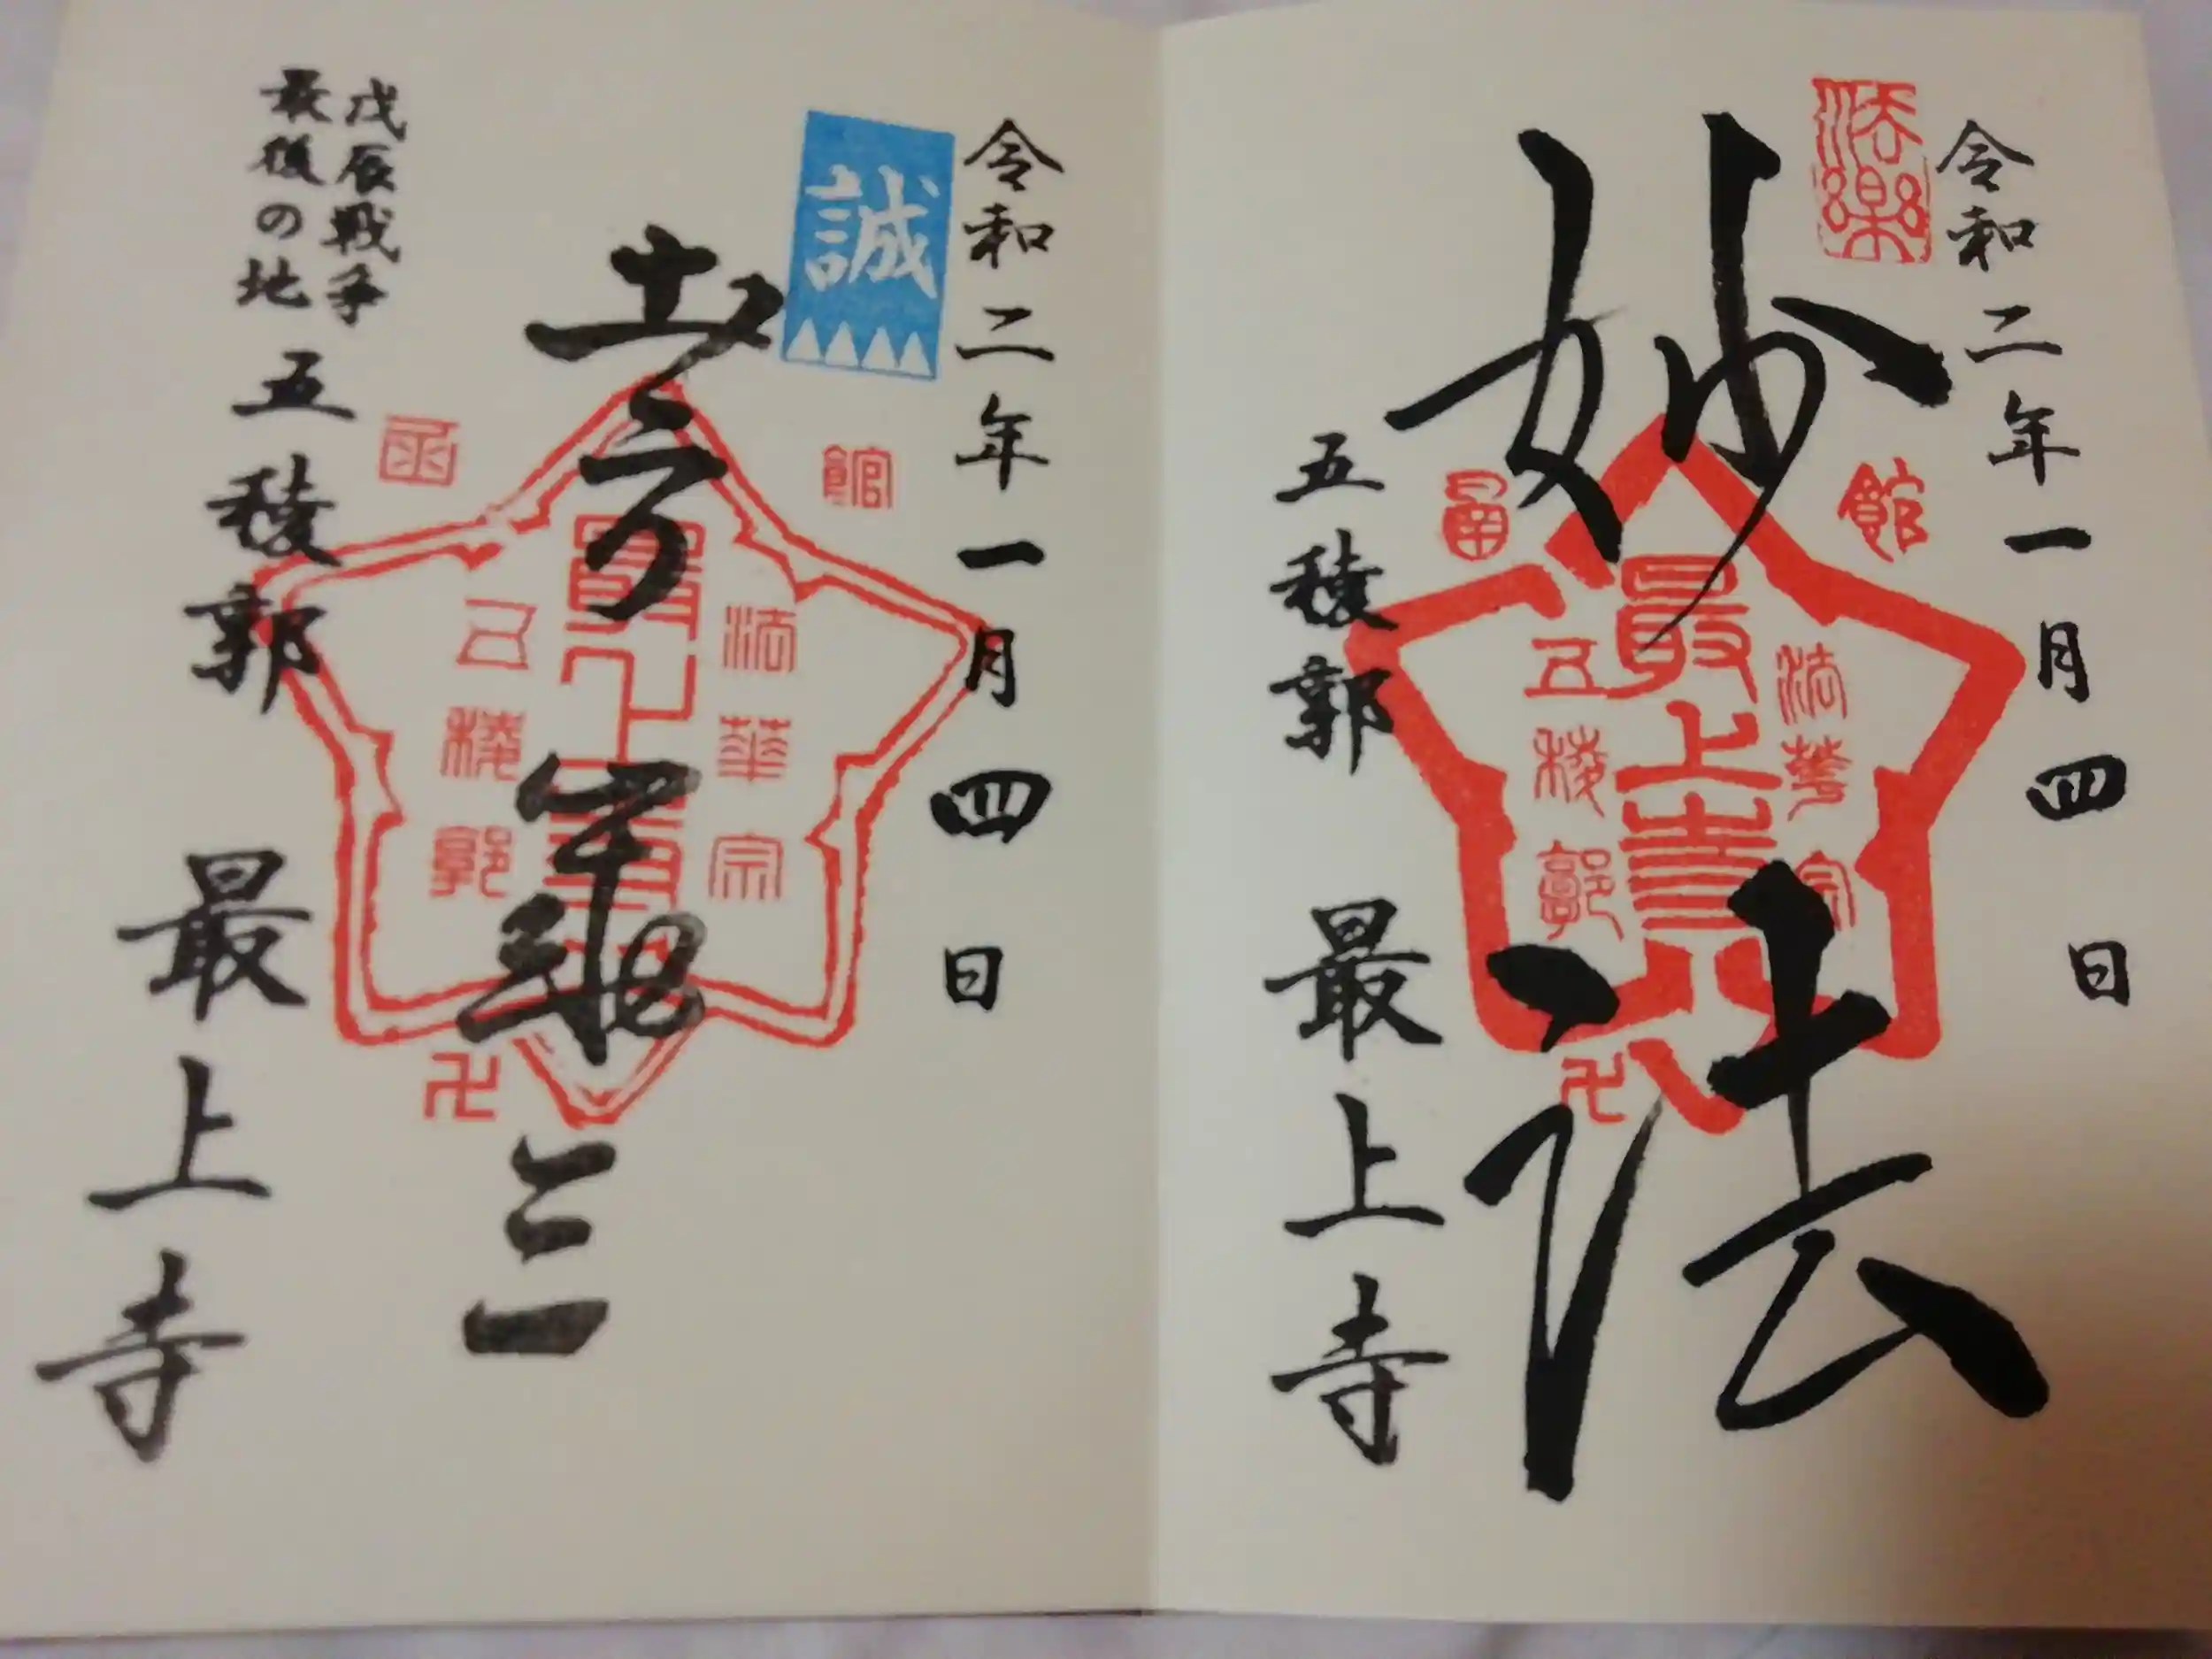 令和二年一月四日
法楽
妙法
函
館
法華宗
最上寺
五稜郭
卍
五稜郭 最上寺
令和二年一月四日
誠
土方歳三
函
館
法華宗
最上寺
五稜郭
卍
戊辰戦争
最後の地
五稜郭 最上寺